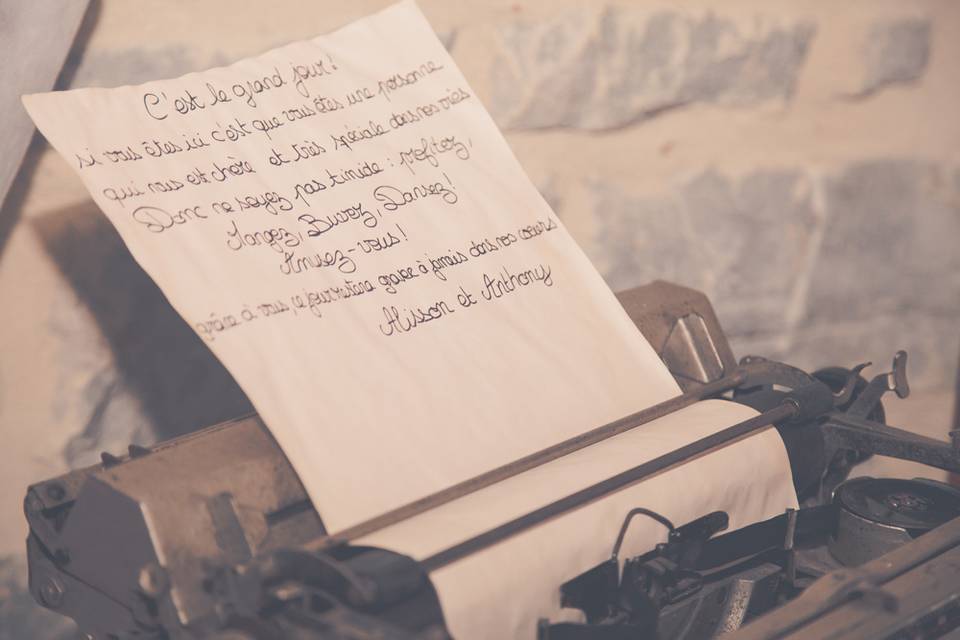 C'est le grand jour!
si vous êtes ici c'est que vous êtes une personne
qui nous est chère et très spéciale dans nos vies
Donc ne soyez pas timide : profitez,
Mangez, Buvez, Dansez!
Amusez-vous!
grâce à vous, ce jour restera gravé à jamais dans nos coeurs
Alisson et Anthony